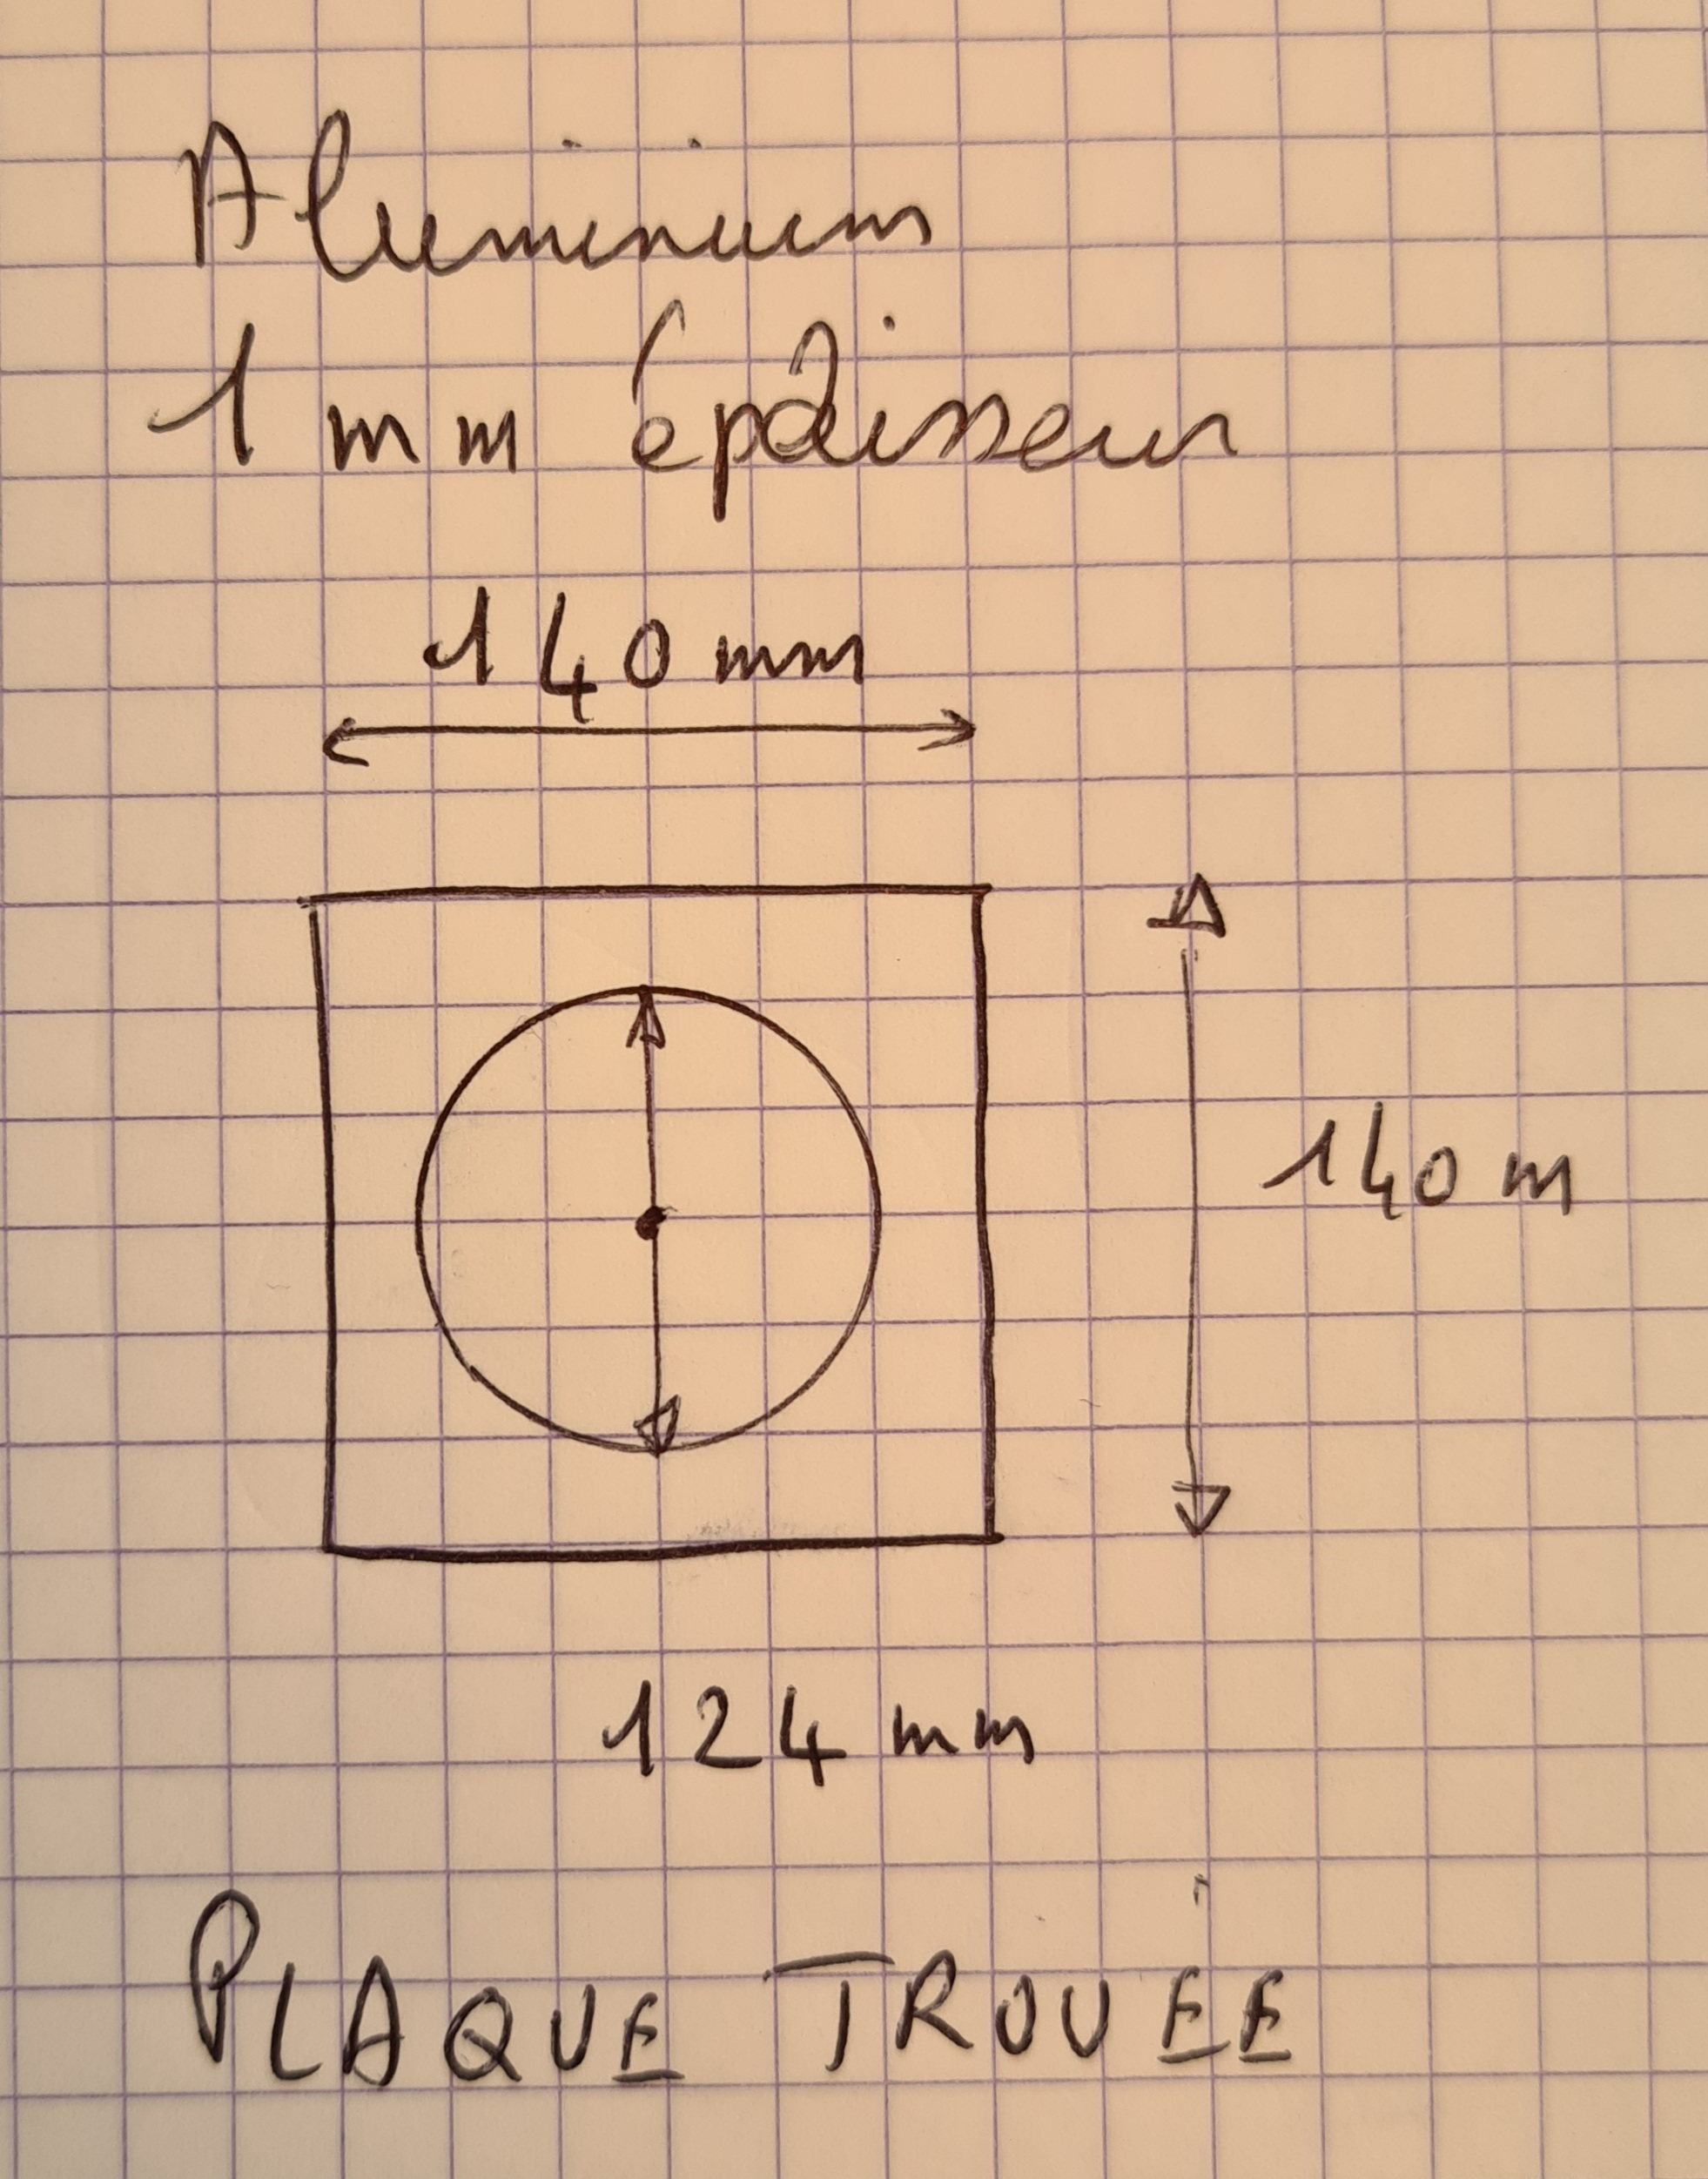 Aluminium
1 mm épaisseur
140 mm
140 m
124 mm
PLAQUE TROUÉE